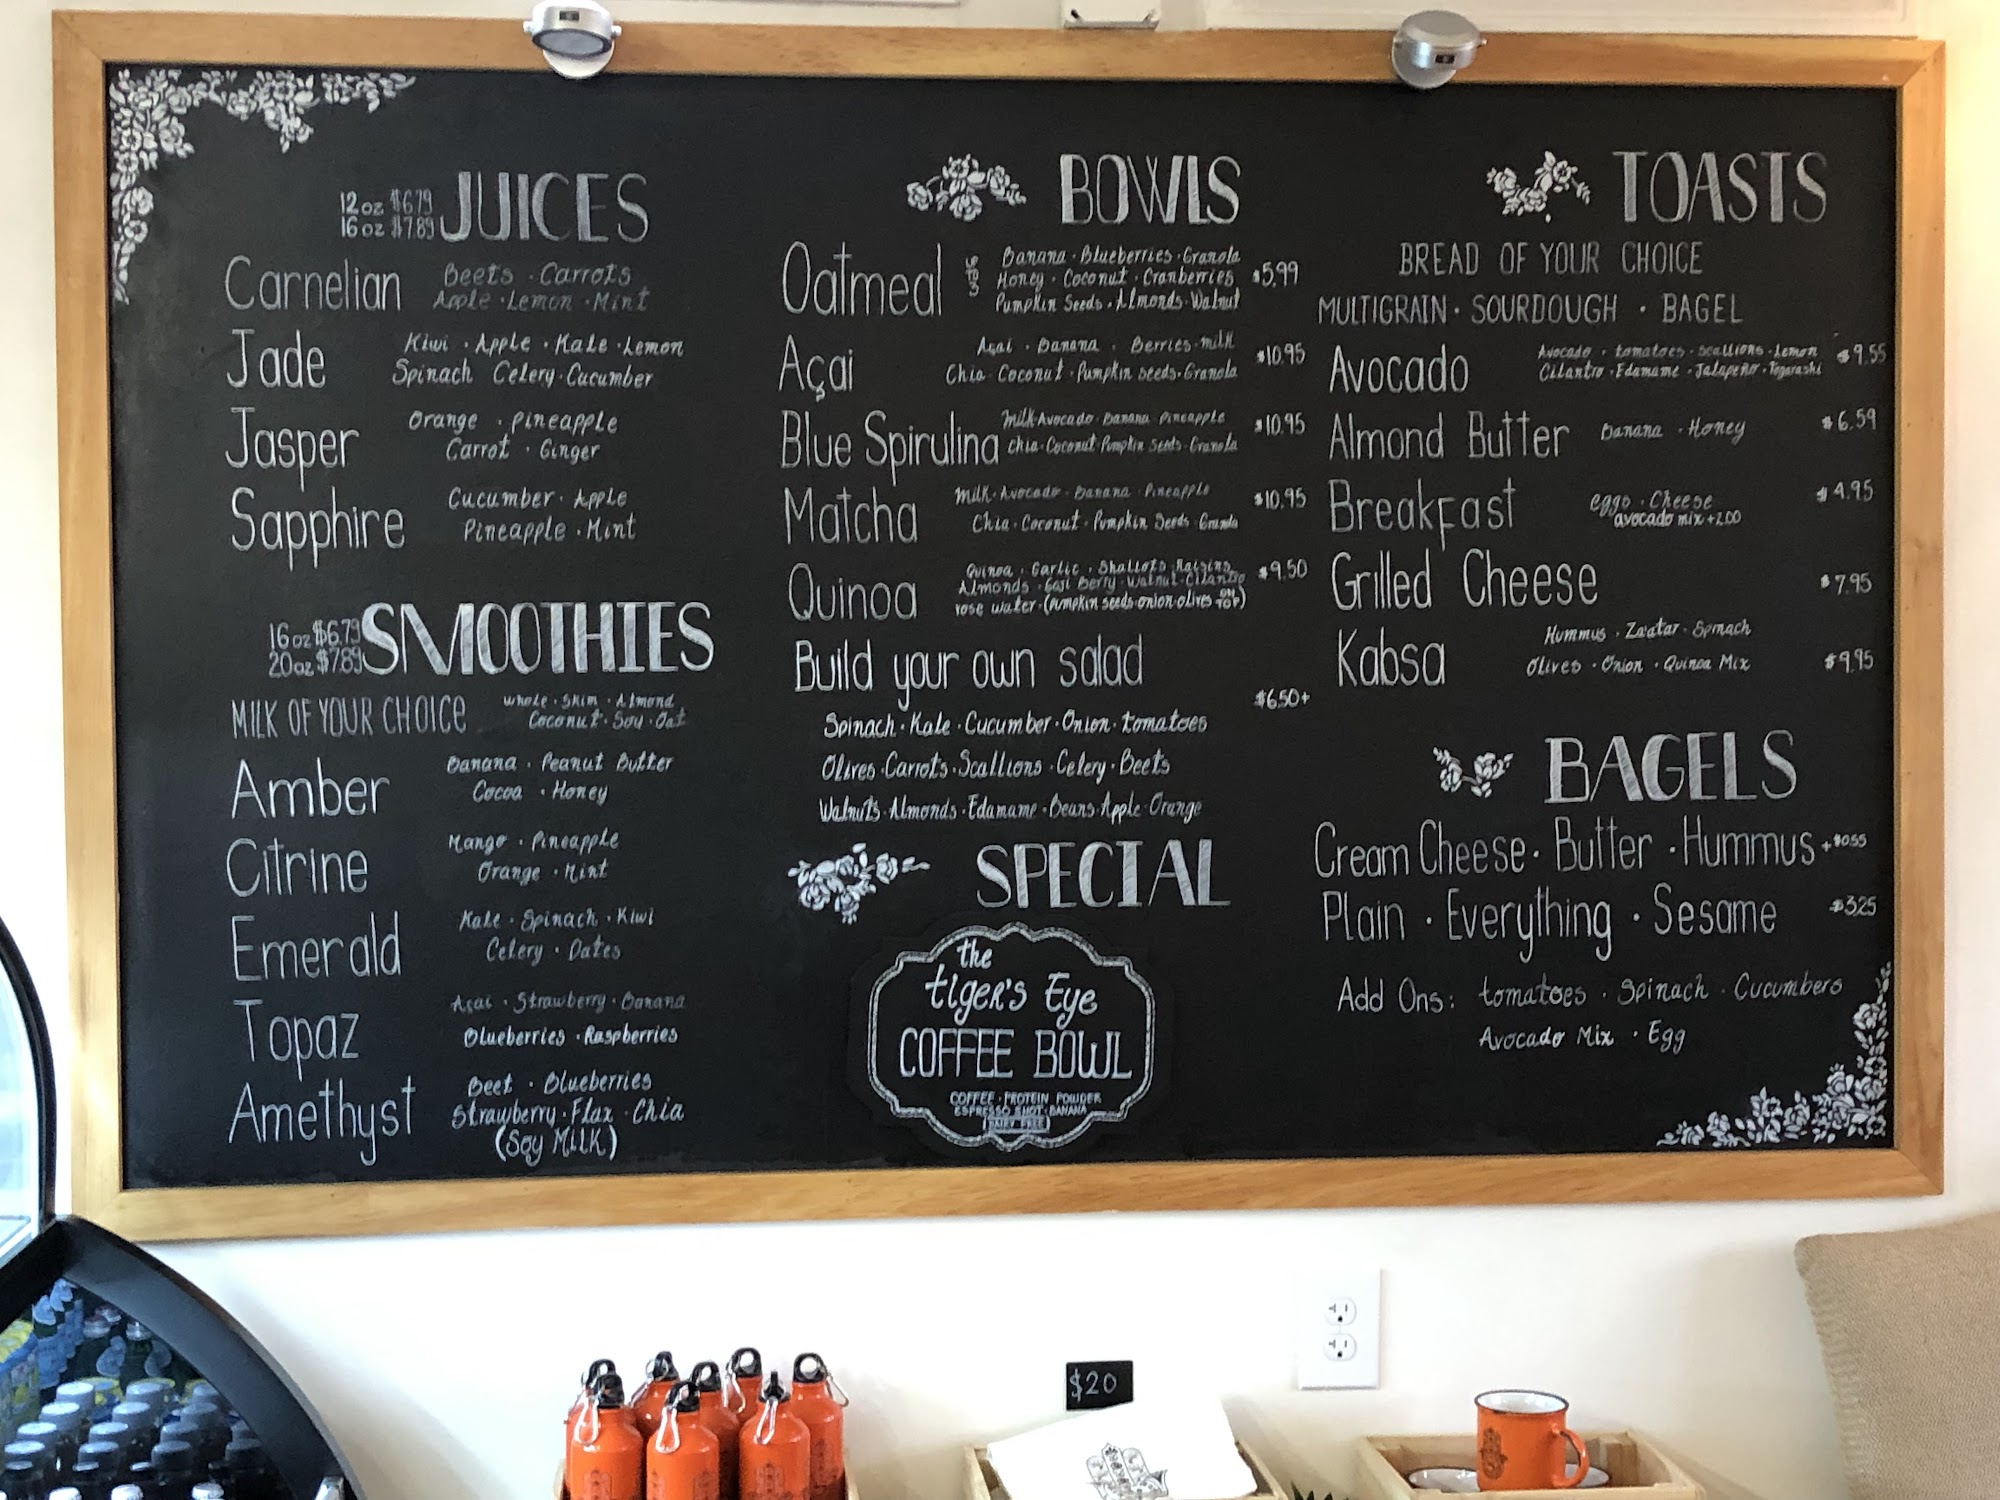 JUICES
12oz $6.79
16oz $7.89
Carnelian
Beets · Carrots
Apple · Lemon · Mint
Jade
Kiwi · Apple · Kale · Lemon
Spinach Celery · Cucumber
Jasper
Orange · Pineapple
Carrot · Ginger
Sapphire
Cucumber · Apple
Pineapple · Mint
SMOOTHIES
16oz $6.79
20oz $7.89
MILK OF YOUR CHOICE
Whole · Skim · Almond
Coconut · Soy · Oat
Amber
Banana · Peanut Butter
Cocoa · Honey
Citrine
Mango · Pineapple
Orange · Mint
Emerald
Kale · Spinach · Kiwi
Celery · Dates
Topaz
Açai · Strawberry · Banana
Blueberries · Raspberries
Amethyst
Beet · Blueberries
Strawberry · Flax · Chia
(Soy Milk)
BOWLS
Oatmeal
Banana · Blueberries · Granola
Honey · Coconut · Cranberries
Pumpkin Seeds · Almonds · Walnut
$5.99
Açai
Açai · Banana · Berries · milk
Chia · Coconut · Pumpkin seeds · Granola
$10.95
Blue Spirulina
Milk · Avocado · Banana · Pineapple
Chia · Coconut · Pumpkin Seeds · Granola
$10.95
Matcha
Milk · Avocado · Banana · Pineapple
Chia · Coconut · Pumpkin Seeds · Granola
$10.95
Quinoa
Quinoa · Garlic · Shallots · Raisins
Almonds · Goji Berry · Walnut · Cilantro
rose water · (pumpkin seeds · onion · olives ON TOP)
$9.50
Build your own salad
$6.50+
Spinach · Kale · Cucumber · Onion · tomatoes
Olives · Carrots · Scallions · Celery · Beets
Walnuts · Almonds · Edamame · Beans · Apple · Orange
SPECIAL
the
tiger's Eye
COFFEE BOWL
COFFEE · PROTEIN POWDER
ESPRESSO SHOT · BANANA
DAIRY FREE
TOASTS
BREAD OF YOUR CHOICE
MULTIGRAIN · SOURDOUGH · BAGEL
Avocado
Avocado · tomatoes · scallions · Lemon
Cilantro · Edamame · Jalapeño · Togarashi
$9.55
Almond Butter
Banana · Honey
$6.59
Breakfast
eggs · Cheese
avocado mix +2.00
$4.95
Grilled Cheese
$7.95
Kabsa
Hummus · Za'atar · Spinach
Olives · Onion · Quinoa Mix
$9.95
BAGELS
Cream Cheese · Butter · Hummus +$0.55
Plain · Everything · Sesame $3.25
Add Ons: tomatoes · Spinach · Cucumbers
Avocado Mix · Egg
$20